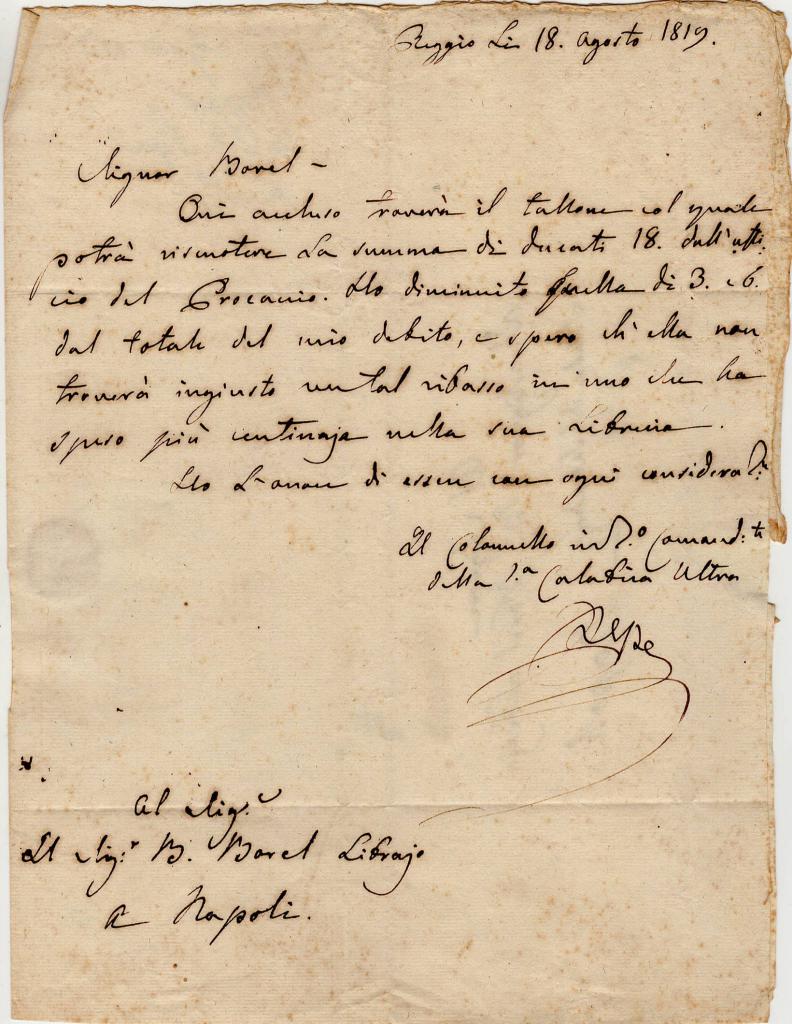 Reggio Li 18. Agosto 1819.
Signor Borel -
Qui accluso troverà il tallone col quale
potrà riscuotere la summa di ducati 18. dall'uffi
cio del Procaccio. Ho diminuito quella di 3. e 6.
dal totale del mio debito, e spero ch'ella non
troverà ingiusto un tal ribasso in uno che ha
speso più centinaja nella sua Libreria.
Ho L'onore di essere con ogni considera.
Il Colonnello Comand:te
della 1.a Calabria Ultra
Pepe
Al Sig.r
Il Sig.r B. Borel Librajo
a Napoli.